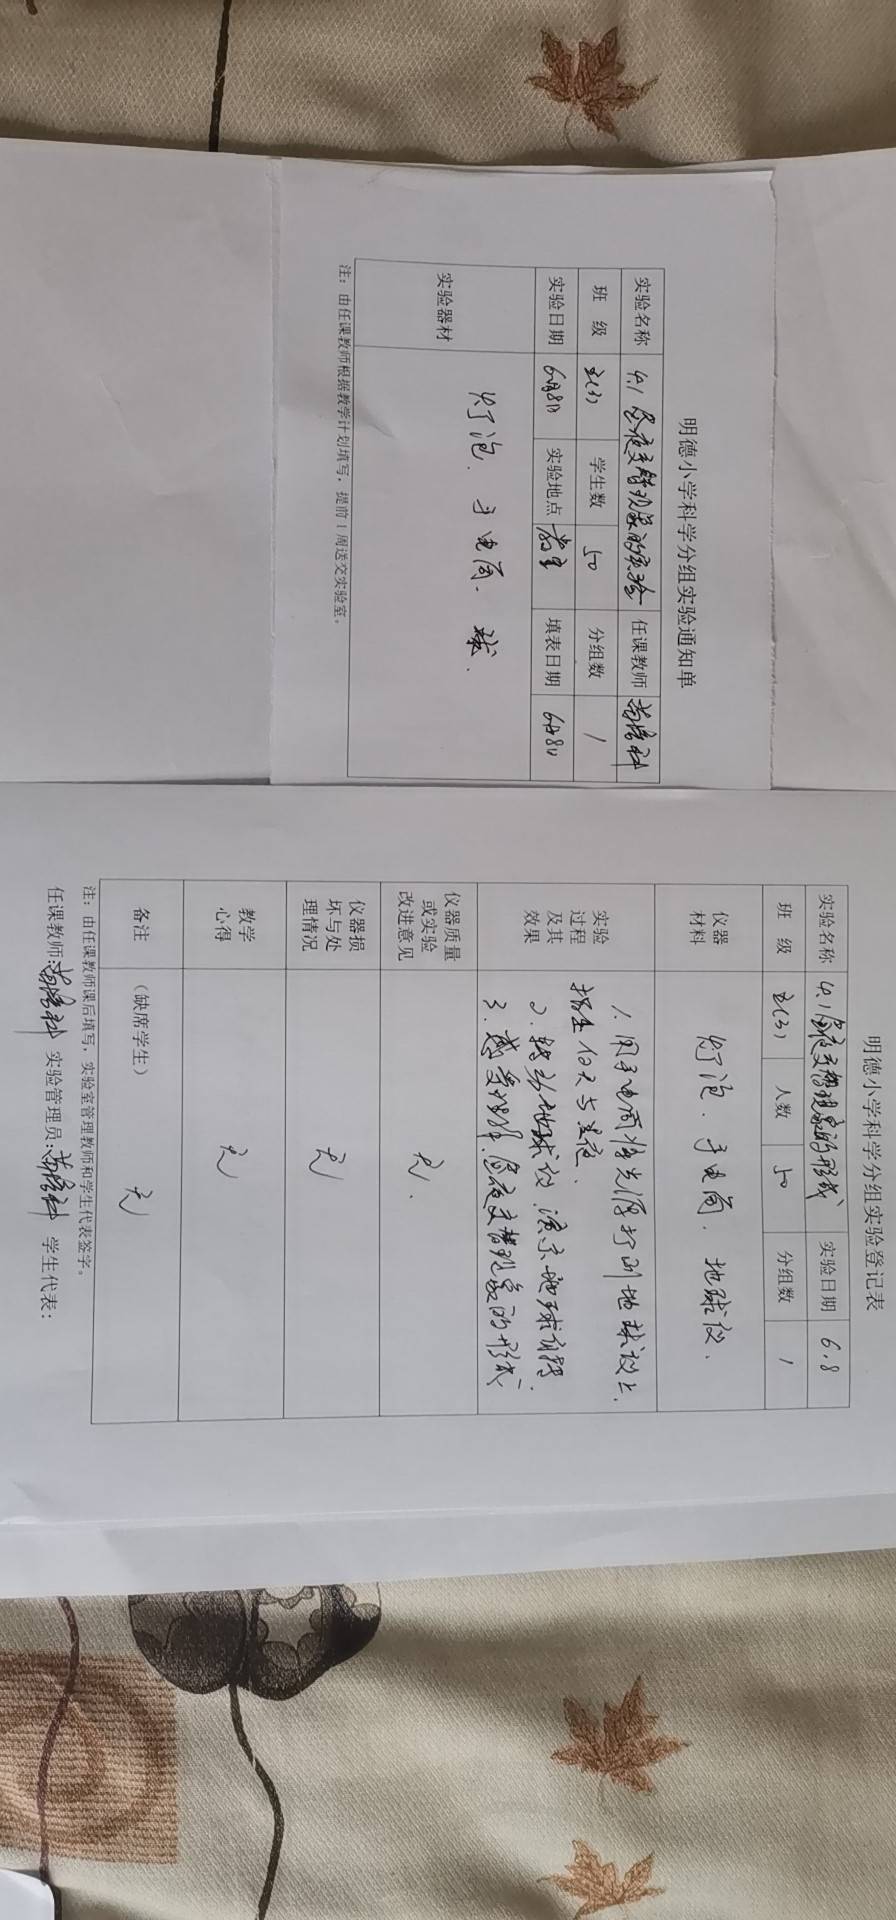 明德小学科学分组实验通知单
实验名称 4.1昼夜交替现象的实验 任课教师
班 级 (3) 学生数 50 分组数 1
实验日期 6月8日 实验地点 教室 填表日期 6月8日
实验器材 灯泡. 手电筒. 球.
注：由任课教师根据教学计划填写，提前1周送交实验室。
明德小学科学分组实验登记表
实验名称 4.1昼夜交替现象的形成 实验日期 6.8
班 级 (3) 人数 50 分组数 1
仪器材料 灯泡. 手电筒. 地球仪.
实验过程及其效果
1. 用手电筒将光源打到地球仪上.
白天与黑夜.
2. 转动地球仪 演示地球自转.
3. 感受理解.昼夜交替现象的形成
仪器质量或实验改进意见 无.
仪器损坏与处理情况 无
教学心得 无
备注 （缺席学生） 无
注：由任课教师课后填写，实验室管理教师和学生代表签字。
任课教师: 实验管理员: 学生代表: